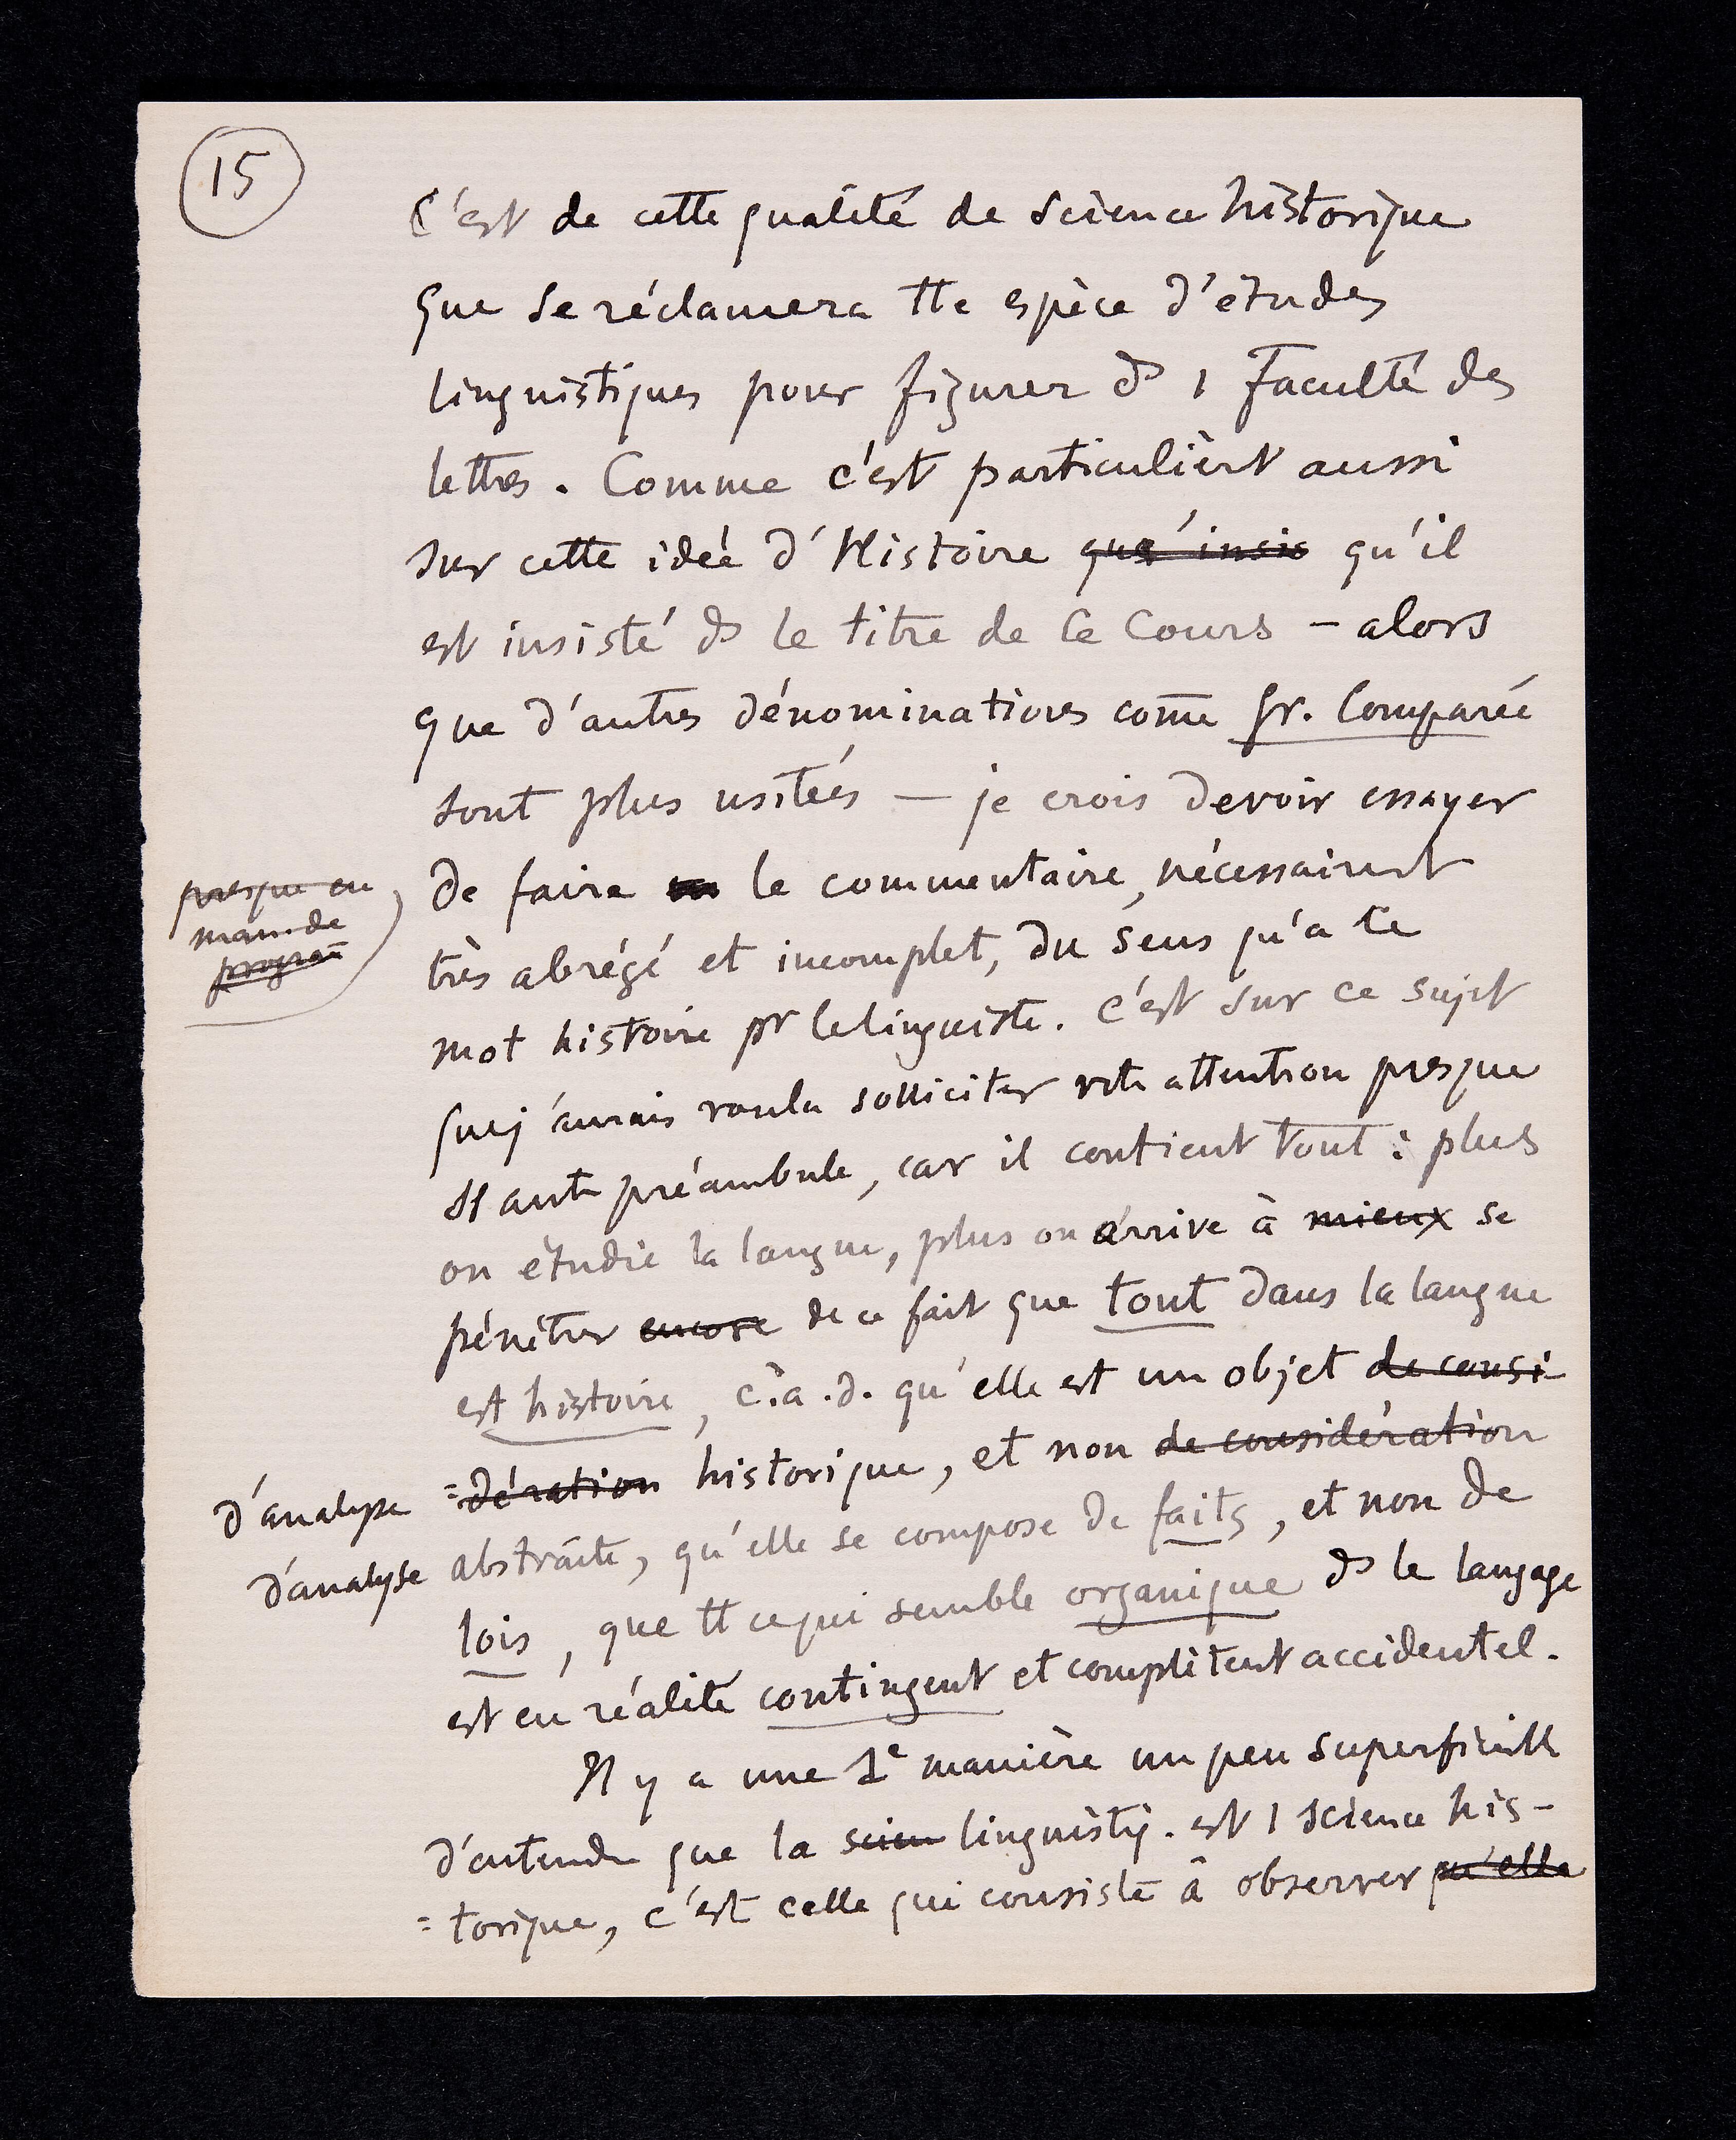 15
C'est de cette qualité de science historique
que se réclamera tte espèce d'études
linguistiques pour figurer ds 1 Faculté des
lettres. Comme c'est particulièrt aussi
sur cette idée d'Histoire que insis qu'il
est insisté ds le titre de ce Cours – alors
que d'autres dénominations comme Gr. Comparée
sont plus usitées — je crois devoir essayer
de faire un le commentaire, nécessairnt
très abrégé et incomplet, du sens qu'a ce
mot histoire pr le linguiste. C'est sur ce sujet
presque en
que j'aurais voulu solliciter votre attention presque
ss autre préambule, car il contient tout : plus
on étudie la langue, plus on arrive à mieux se
pénétrer encore de ce fait que tout dans la langue
est histoire, c.à.d. qu'elle est un objet de consi
d'analyse =dération historique, et non de considération
d'analyse abstraite, qu'elle se compose de faits, et non de
lois, que tt ce qui semble organique ds le langage
est en réalité contingent et complètent accidentel.
Il y a une 1e manière un peu superficielle
d'entendre que la scien linguistiq. est 1 science his-
=torique, c'est celle qui consiste à observer qu'elle